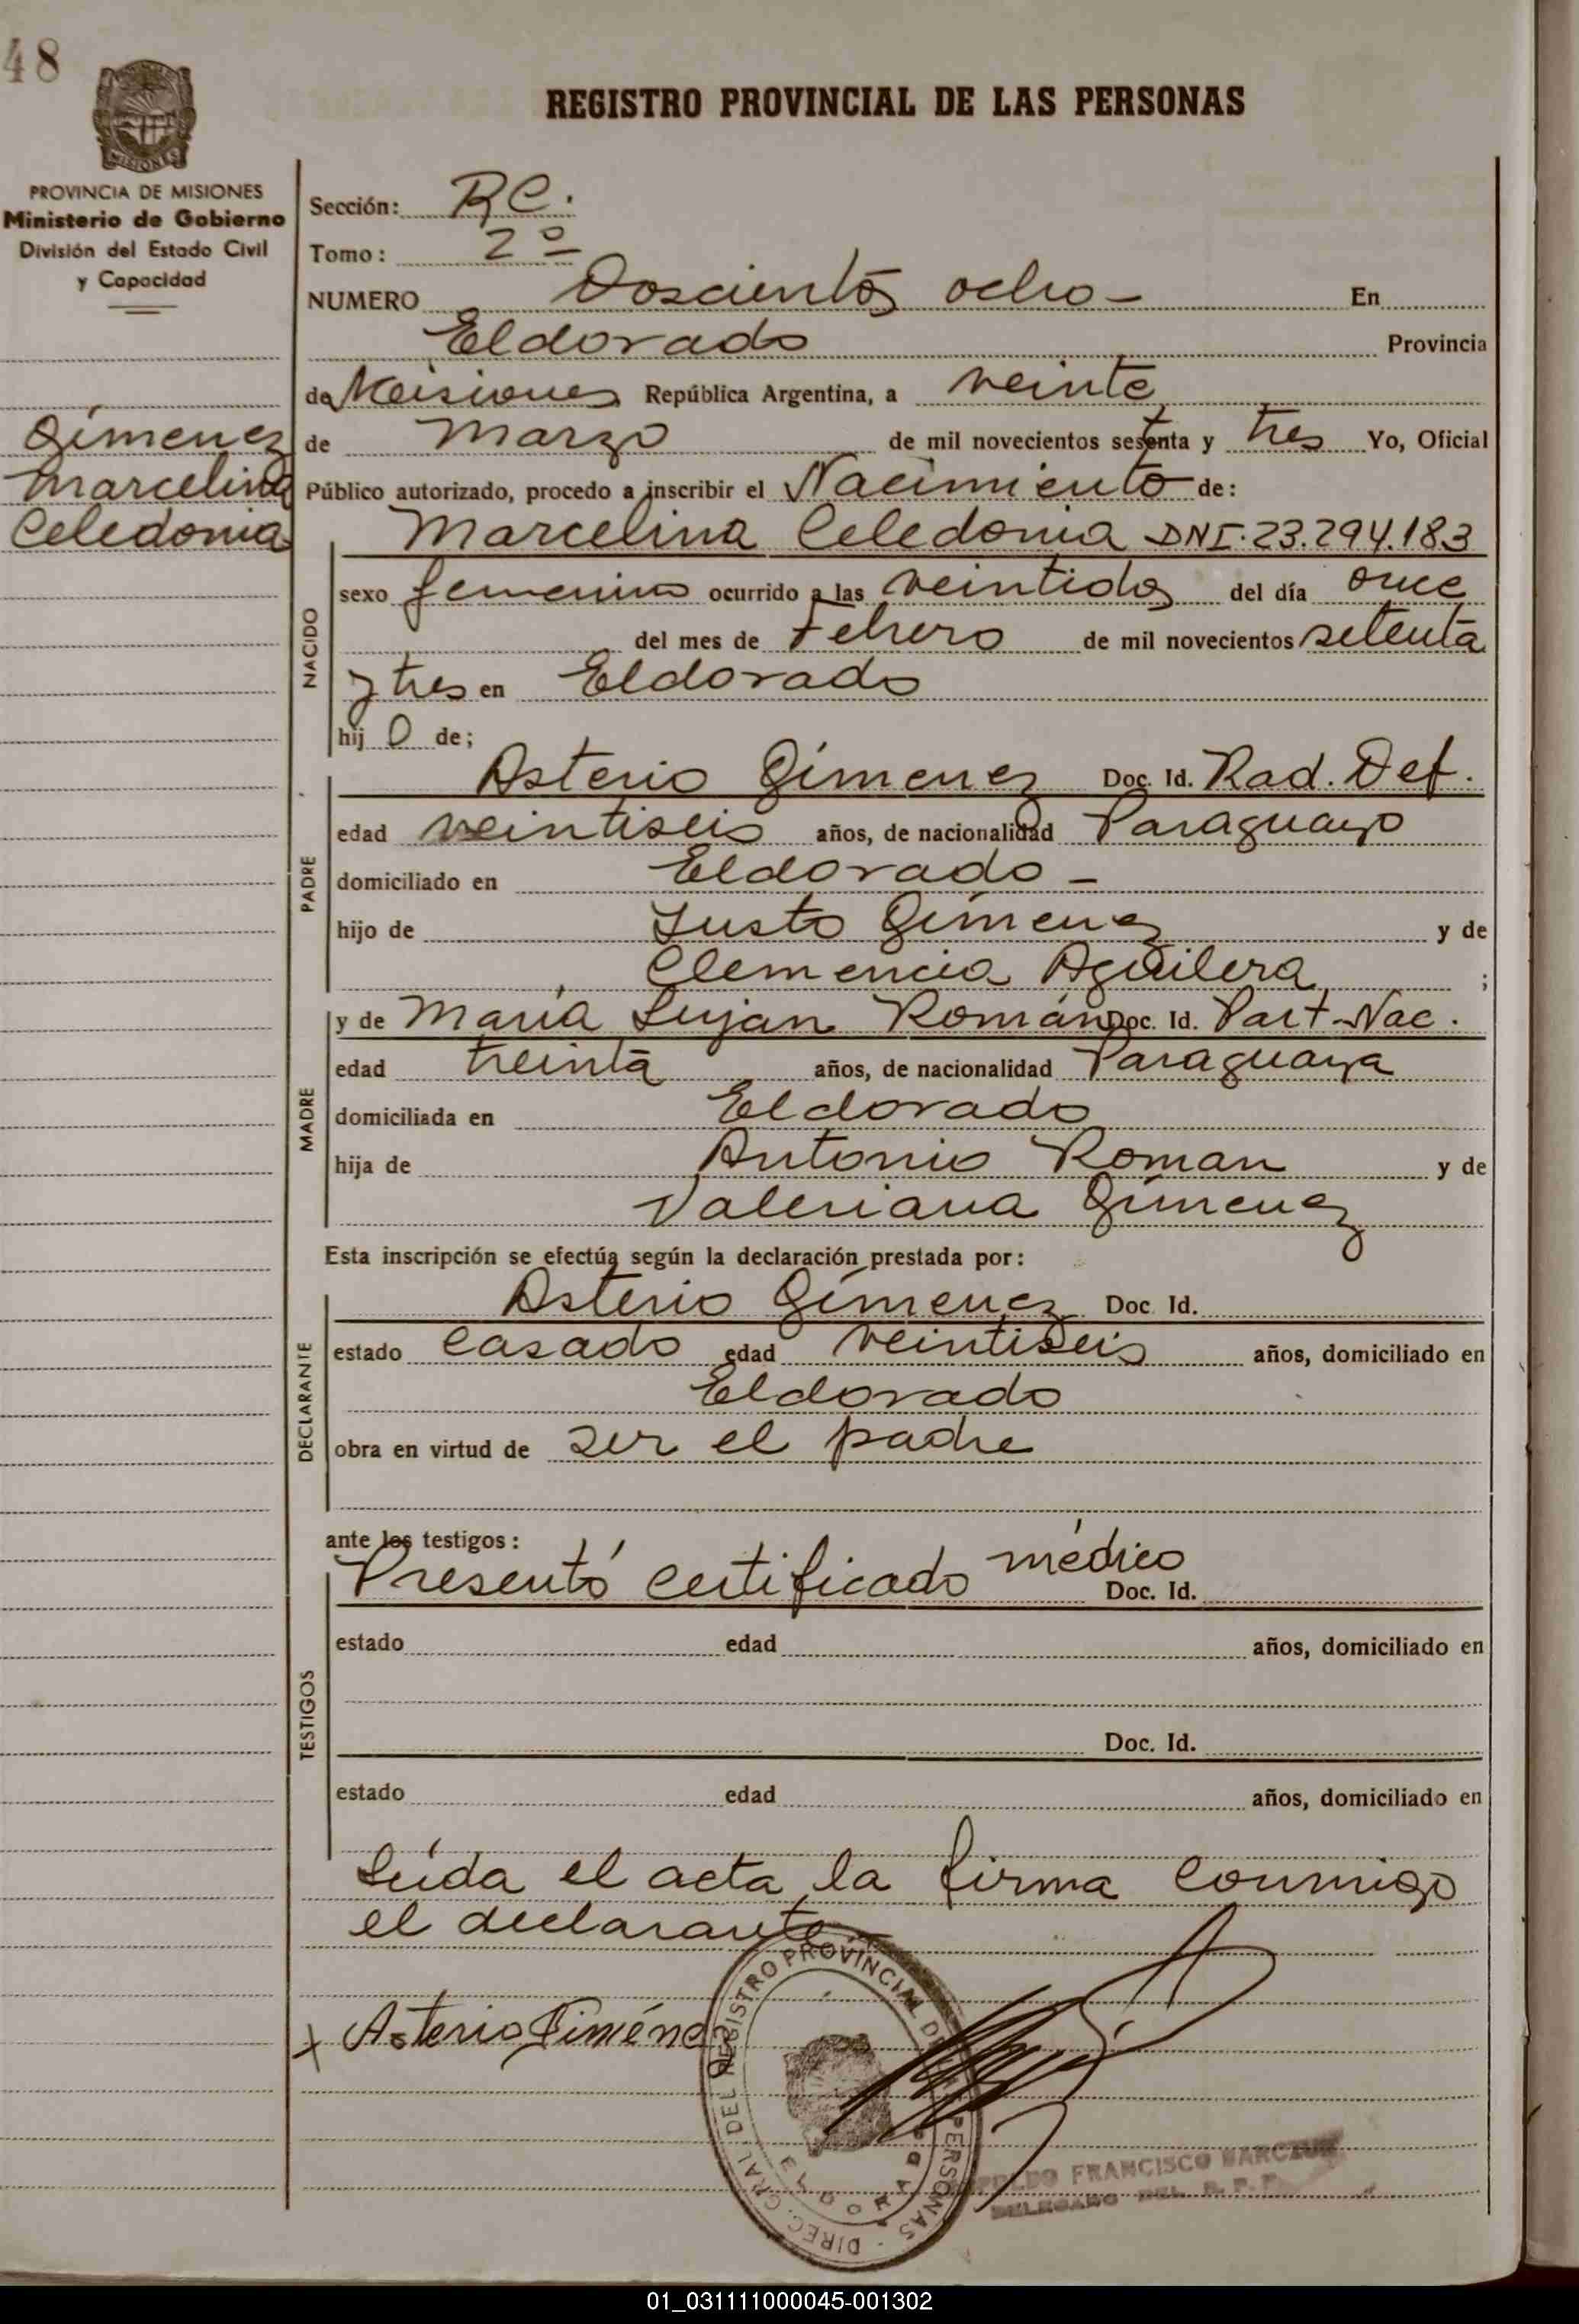 48
REGISTRO PROVINCIAL DE LAS PERSONAS
MISIONES
PROVINCIA DE MISIONES
Ministerio de Gobierno
División del Estado Civil
y Capacidad
Gímenez
Marcelina
Celedonia
Sección: RC.
Tomo: 2º
NUMERO Doscientos ocho - En
Eldorado Provincia
de Misiones República Argentina, a veinte
de Marzo de mil novecientos setenta y tres Yo, Oficial
Público autorizado, procedo a inscribir el Nacimiento de:
NACIDO
Marcelina Celedonia DNI. 23.294.183
sexo femenino ocurrido a las veintidos del día once
del mes de Febrero de mil novecientos setenta
y tres en Eldorado
hij O de;
PADRE
Asterio Gímenez Doc. Id. Rad. Def.
edad veintiseis años, de nacionalidad Paraguayo
domiciliado en Eldorado -
hijo de Justo Gímenez y de
Clemencia Aguilera ;
MADRE
y de María Lujan Román Doc. Id. Part-Nac.
edad treinta años, de nacionalidad Paraguaya
domiciliada en Eldorado
hija de Antonio Roman y de
Valeriana Gímenez
Esta inscripción se efectúa según la declaración prestada por:
DECLARANTE
Asterio Gímenez Doc Id.
estado Casado edad veintiseis años, domiciliado en
Eldorado
obra en virtud de ser el padre
ante los testigos:
TESTIGOS
Presentó certificado médico Doc. Id.
estado edad años, domiciliado en
Doc. Id.
estado edad años, domiciliado en
Leída el acta, la firma conmigo
el declarante
x Asterio Jiménez
DIREC. GRAL. DEL REGISTRO PROVINCIAL DE LAS PERSONAS
ELDORADO
FRANCISCO
DELEGADO DEL R. P. P.
01_031111000045-001302